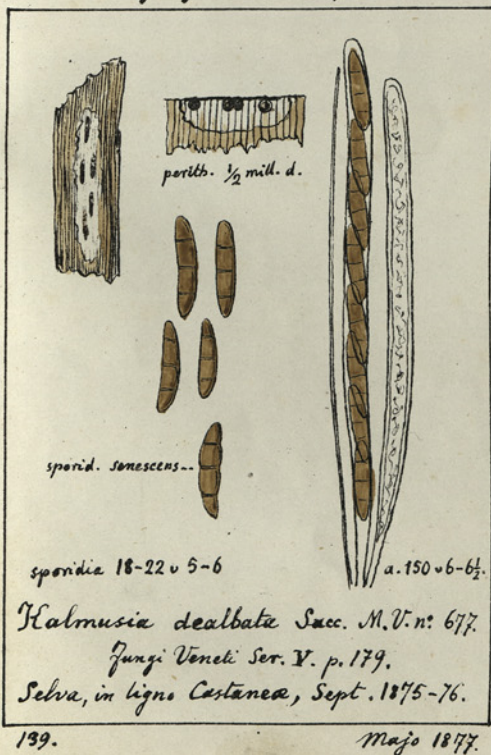 perith. 1/2 mill. d.
sporid. senescens--
sporidia 18-22 ᴗ 5-6
a. 150 ᴗ 6-6½.
Kalmusia dealbata Sacc. M.V. nº 677.
Fungi Veneti Ser. V. p. 179.
Selva, in ligno Castaneæ, Sept. 1875-76.
139.
Majo 1877.